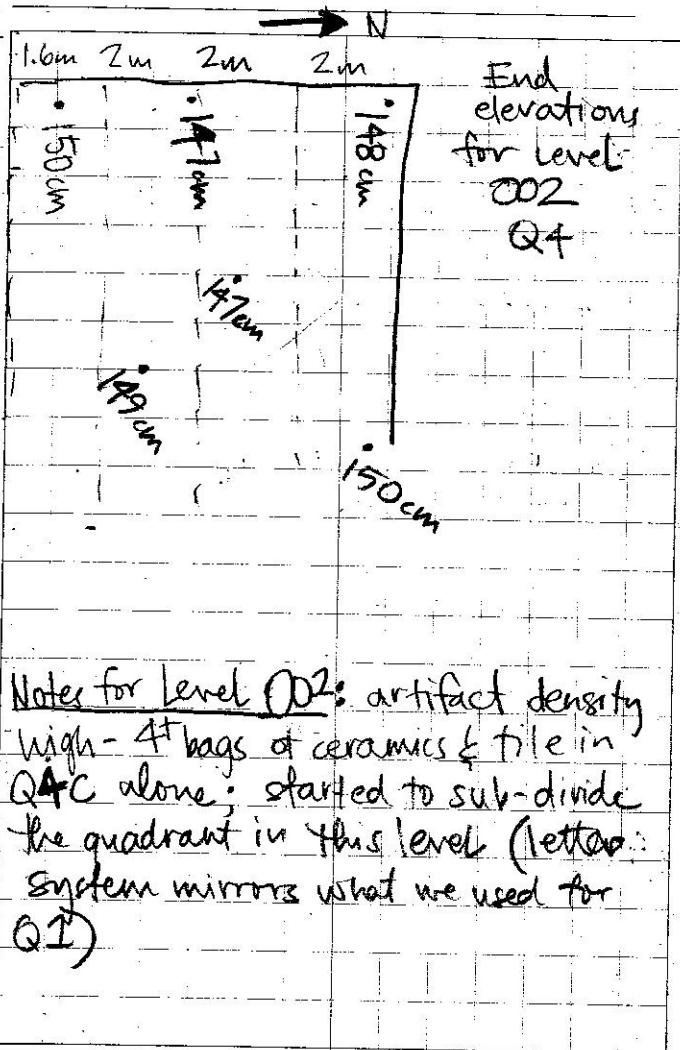 N
1.6m 2m 2m 2m
End
elevations
for level
002
Q4
150cm
147cm
148cm
147cm
149cm
150cm
Notes for Level 002: artifact density
high - 4+ bags of ceramics & tile in
Q4C alone; started to sub-divide
the quadrant in this level (letter
system mirrors what we used for
Q1)